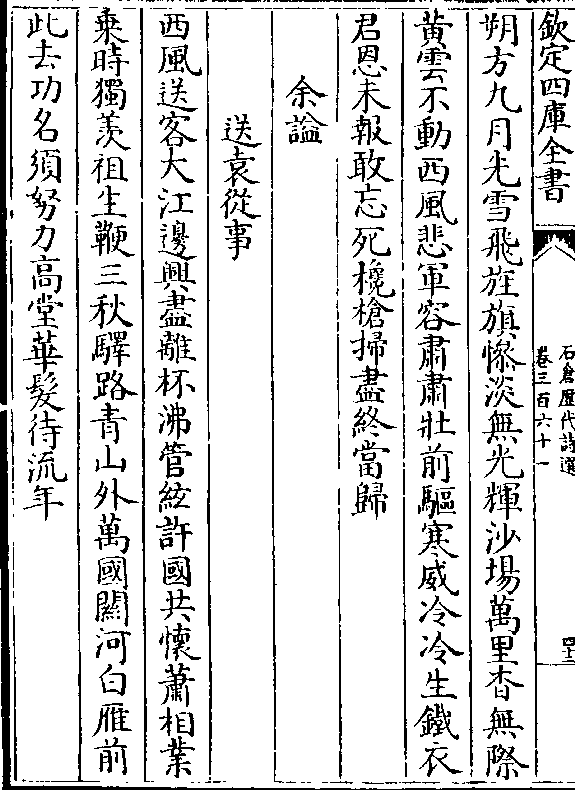 欽定四庫全書
石倉歷代詩選
卷三百六十一
四十二
朔方九月先雪飛旌旗慘淡無光輝沙場萬里杳無際
黃雲不動西風悲軍容肅肅壯前驅寒威冷冷生鐵衣
君恩未報敢忘死欃槍掃盡終當歸
余謐
送袁從事
西風送客大江邊興盡離杯沸管絃許國共懷蕭相業
乘時獨羨祖生鞭三秋驛路青山外萬國關河白雁前
此去功名須努力高堂華髮待流年